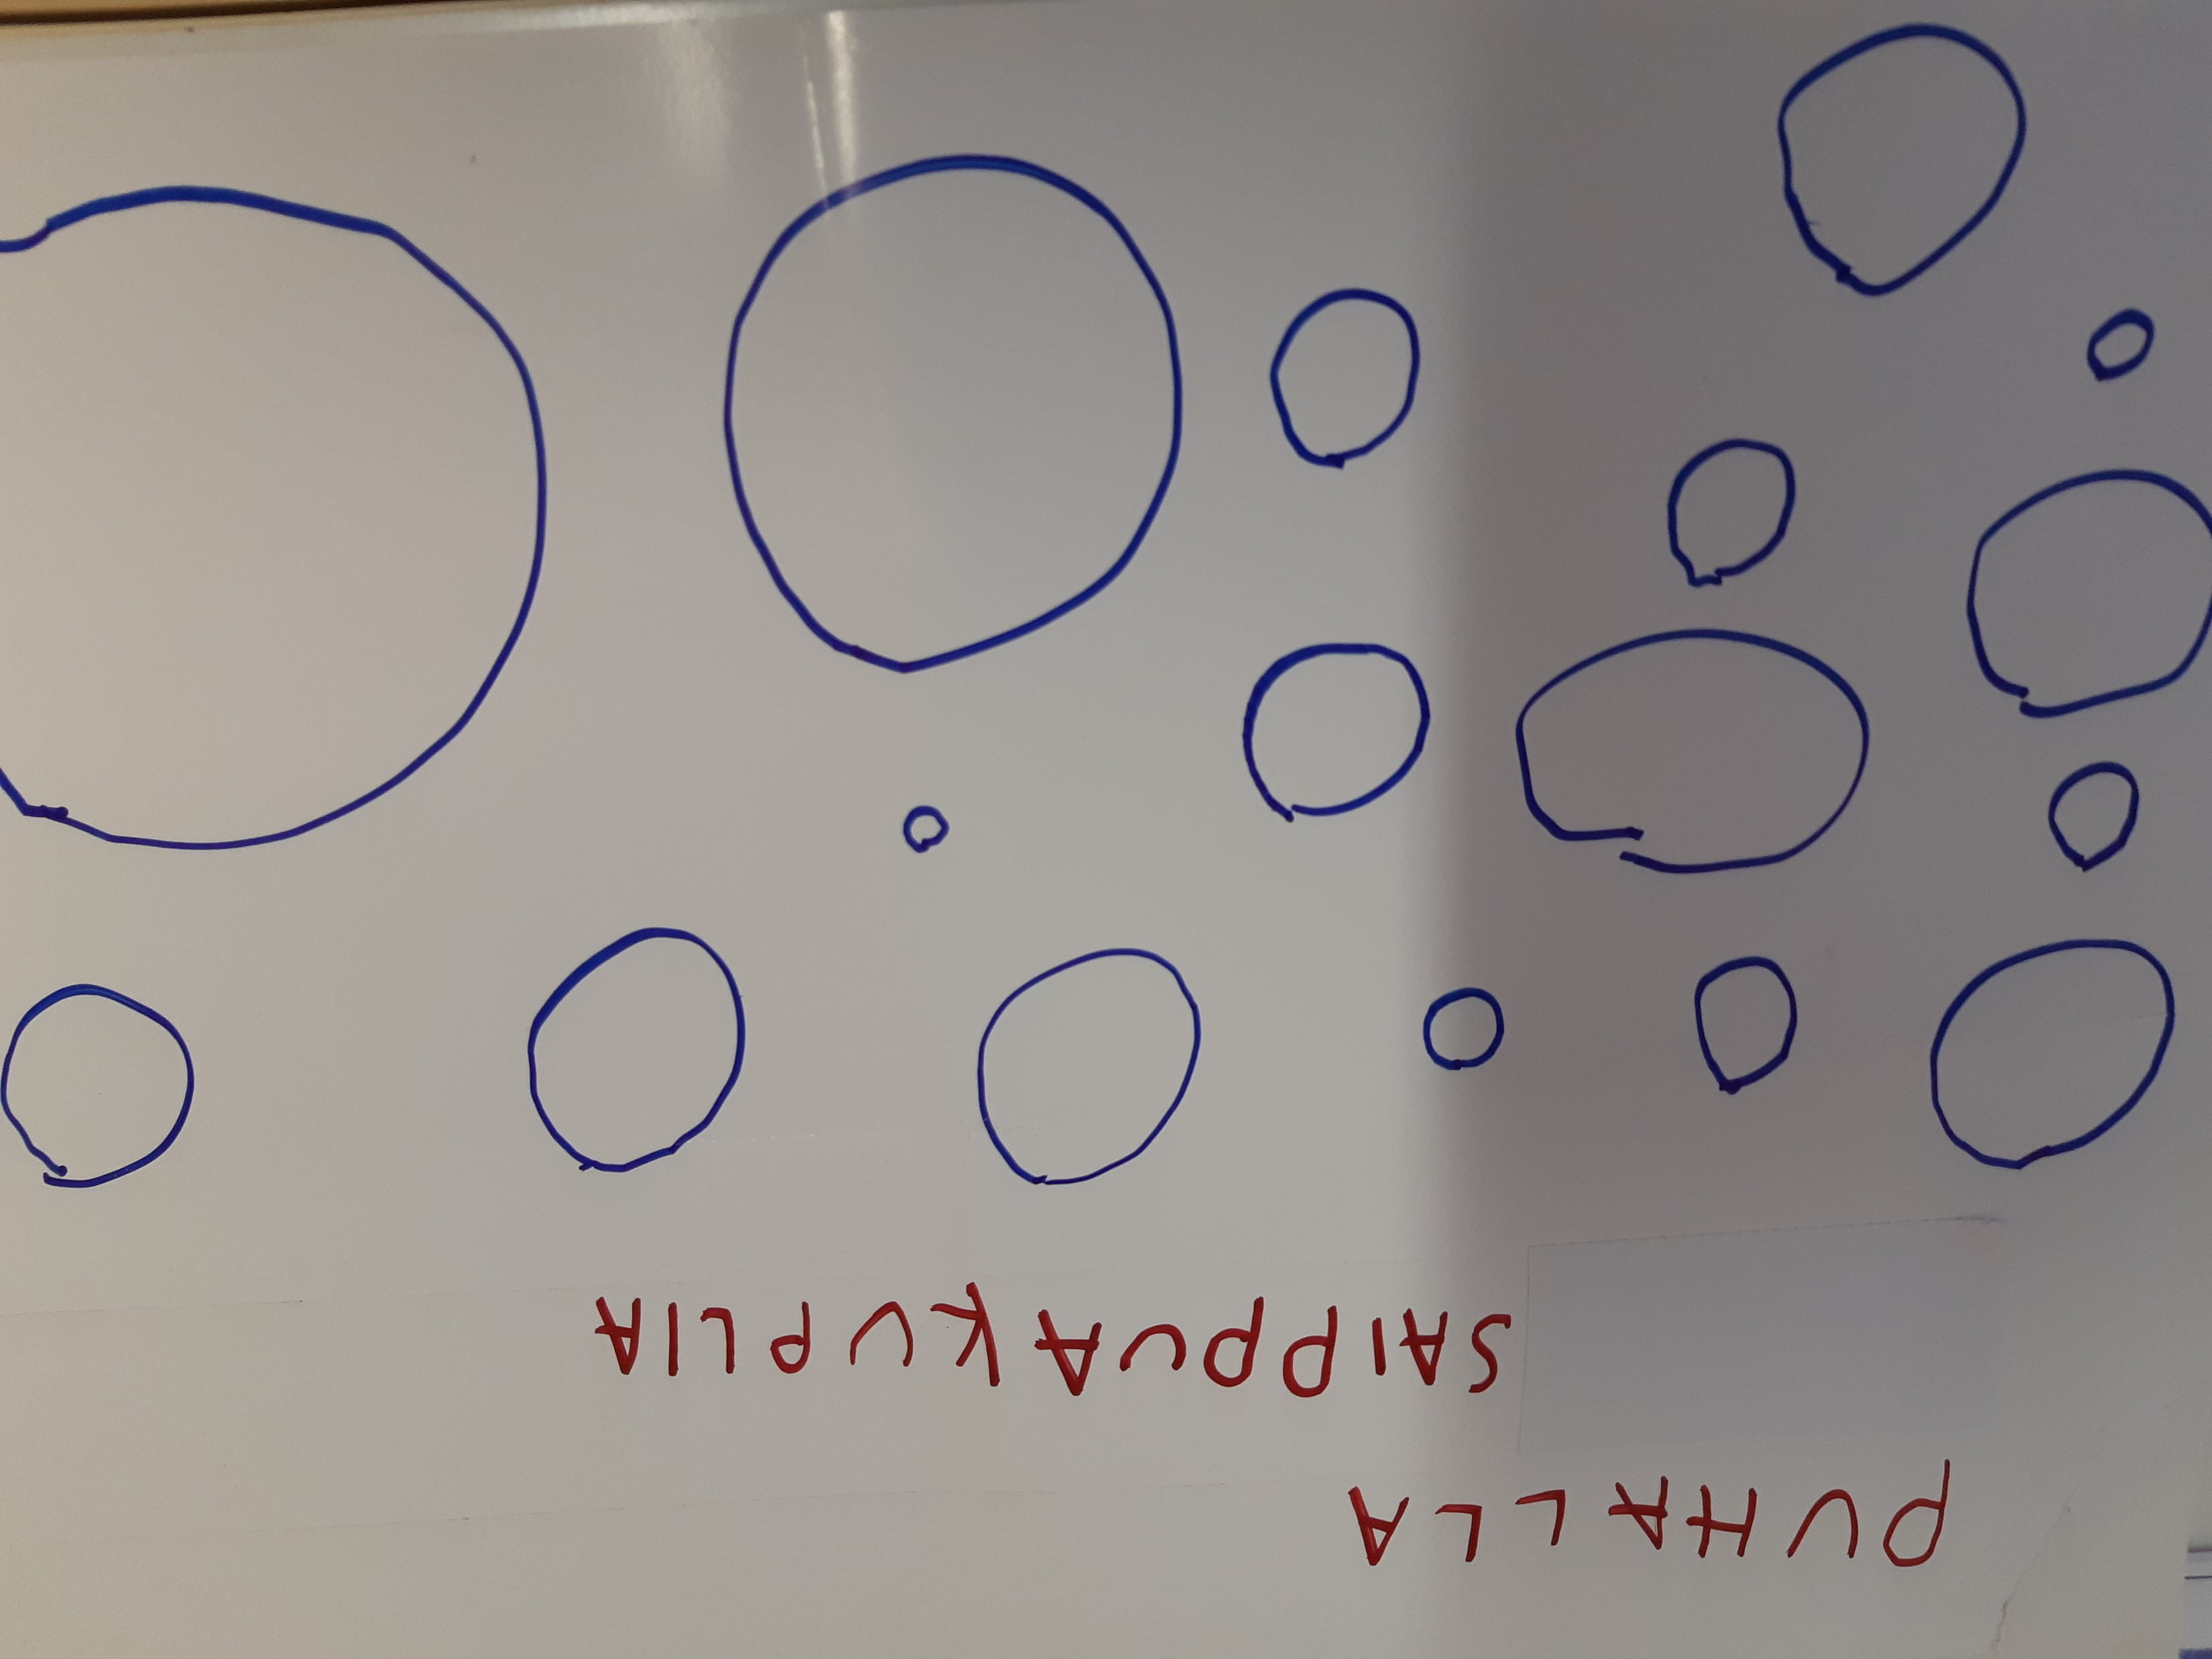 PUHALLA
SAIPPUAKUPLIA